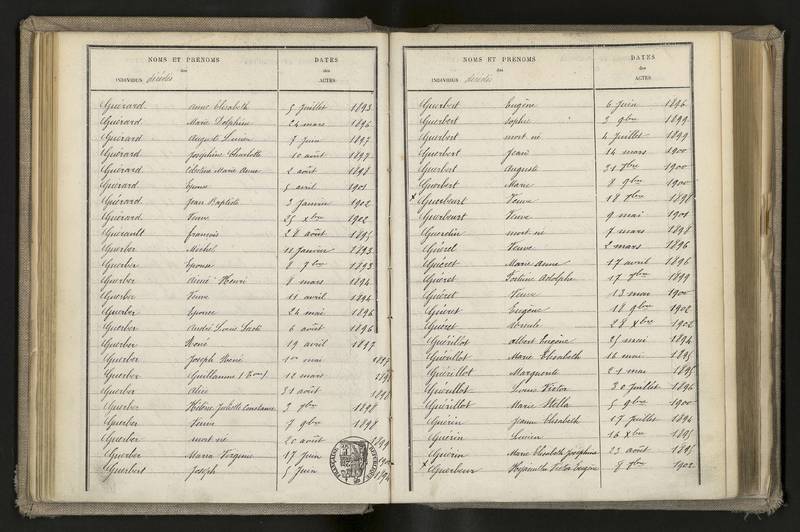 NOMS ET PRÉNOMS
des
INDIVIDUS décédés
DATES
des
ACTES
Guérard Anne Elisabeth 5 Juillet 1893
Guérard Marie Delphine 24 mars 1896
Guérard Auguste Lucien 7 Juin 1897
Guérard Joséphine Charlotte 10 août 1897
Guérard Marie Anne 2 août 1898
Guérard Epouse 5 avril 1901
Guérard Jean Baptiste 3 Janvier 1902
Guérard Veuve 25 Xbre 1902
Guerault François 28 août 1895
Guerber Michel 11 Janvier 1893
Guerber Epouse 8 7bre 1893
Guerber Aimé Henri 8 mars 1894
Guerber Veuve 11 avril 1896
Guerber Epouse 24 mai 1896
Guerber André Louis 6 août 1896
Guerber René 19 avril 1897
Guerber Joseph René 1er mai 1897
Guerber Guillaume 12 mars 1898
Guerber Alice 31 août 1898
Guerber Hélène Juliette Constance 3 7bre 1898
Guerber Veuve 7 9bre 1898
Guerber mort né 20 août 1899
Guerber Maria Virginie 17 Juin
Guerbert Joseph 5 Juin
NOMS ET PRÉNOMS
des
INDIVIDUS décédés
DATES
des
ACTES
Guerbert Eugène 6 Juin 1896
Guerbert Sophie 3 9bre 1899
Guerbert mort né 4 Juillet 1899
Guerbert Jean 14 mars 1900
Guerbert Auguste 21 7bre 1900
Guerbert Marie 8 9bre 1900
x Guerbeurt Veuve 18 7bre 1898
Guerbeurt Veuve 9 mai 1901
Guerdin mort né 7 mars 1898
Guéret Veuve 2 mars 1896
Guéret Marie Anne 17 avril 1896
Guéret Adolphe 17 7bre 1899
Guéret Veuve 13 mai 1900
Guéret Eugène 18 9bre 1902
Guéret Ursule 28 Xbre 1902
Guérillot Albert Eugène 25 mai 1894
Guérillot Marie Elisabeth 16 mai 1895
Guérillot Marguerite 21 mai 1895
Guérillot Louis Victor 30 Juillet 1896
Guérillot Marie Stella 5 9bre 1900
Guérin Jeanne Elisabeth 17 Juillet 1894
Guérin Lucien 16 Xbre 1895
Guérin Marie Elisabeth Joséphine 23 août 1895
x Guerbeur Hyacinthe Victor Eugène 8 7bre 1902